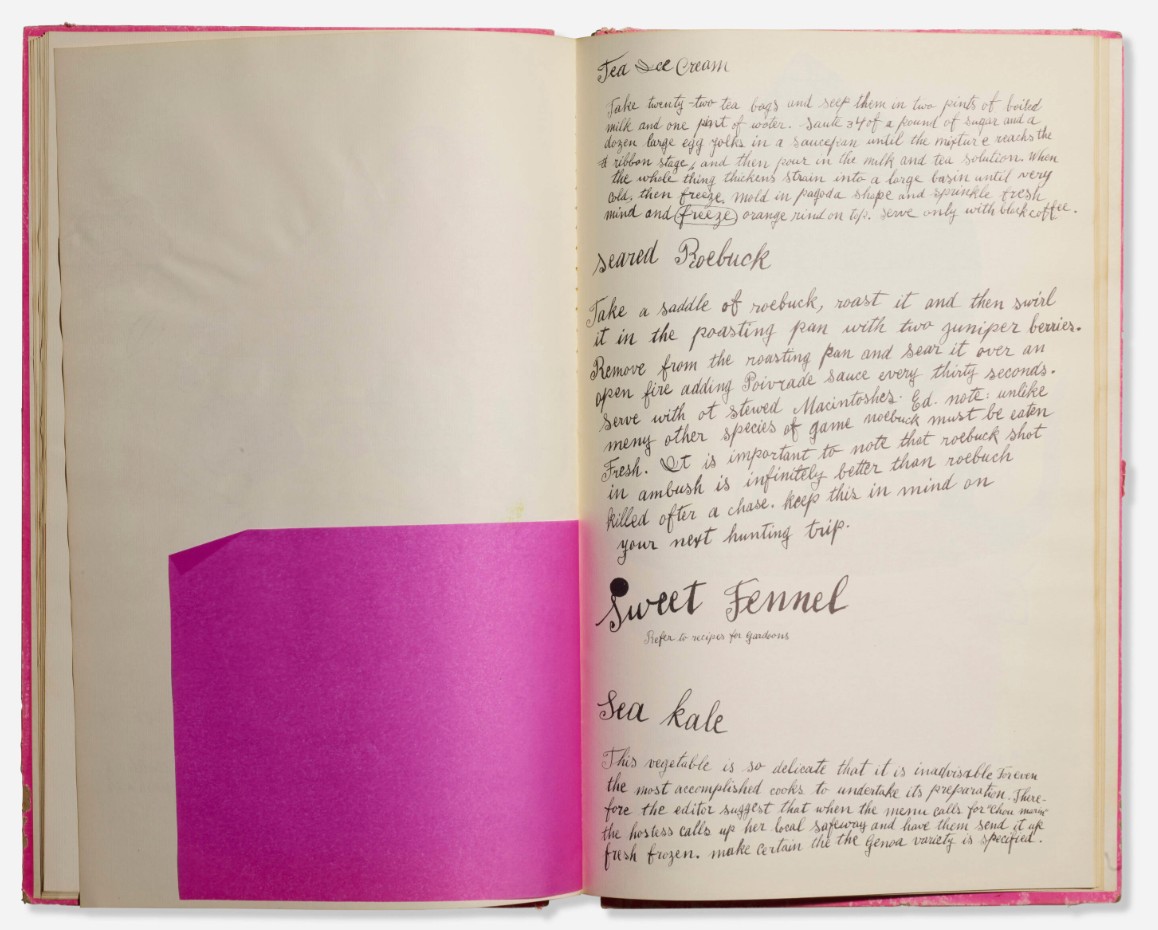 Tea Ice Cream
Take twenty-two tea bags and seep them in two pints of boiled
milk and one pint of water. Sauté 3/4 of a pound of sugar and a
dozen large egg yolks in a saucepan until the mixture reaches the
ribbon stage, and then pour in the milk and tea solution. When
the whole thing thickens strain into a large basin until very
cold, then freeze. Mold in pagoda shape and sprinkle fresh
mind and freeze orange rind on top. Serve only with black coffee.
seared Roebuck
Take a saddle of roebuck, roast it and then swirl
it in the poasting pan with two juniper berries.
Remove from the roasting pan and sear it over an
open fire adding Poivrade Sauce every thirty seconds.
Serve with ot stewed Macintoshes. Ed. note: unlike
meny other species of game roebuck must be eaten
Fresh. It is important to note that roebuck shot
in ambush is infinitely better than roebuch
killed ofter a chase. keep this in mind on
your next hunting trip.
Sweet Fennel
Refer to recipes for Gardoons
Sea kale
This vegetable is so delicate that it is inadvisable Foreven
the most accomplished cooks to undertake its preparation. There-
fore the editor suggest that when the menu calls for "chou marin"
the hostess calls up her local safeway and have them send it up
fresh frozen. make certain the the Genoa variety is specified.